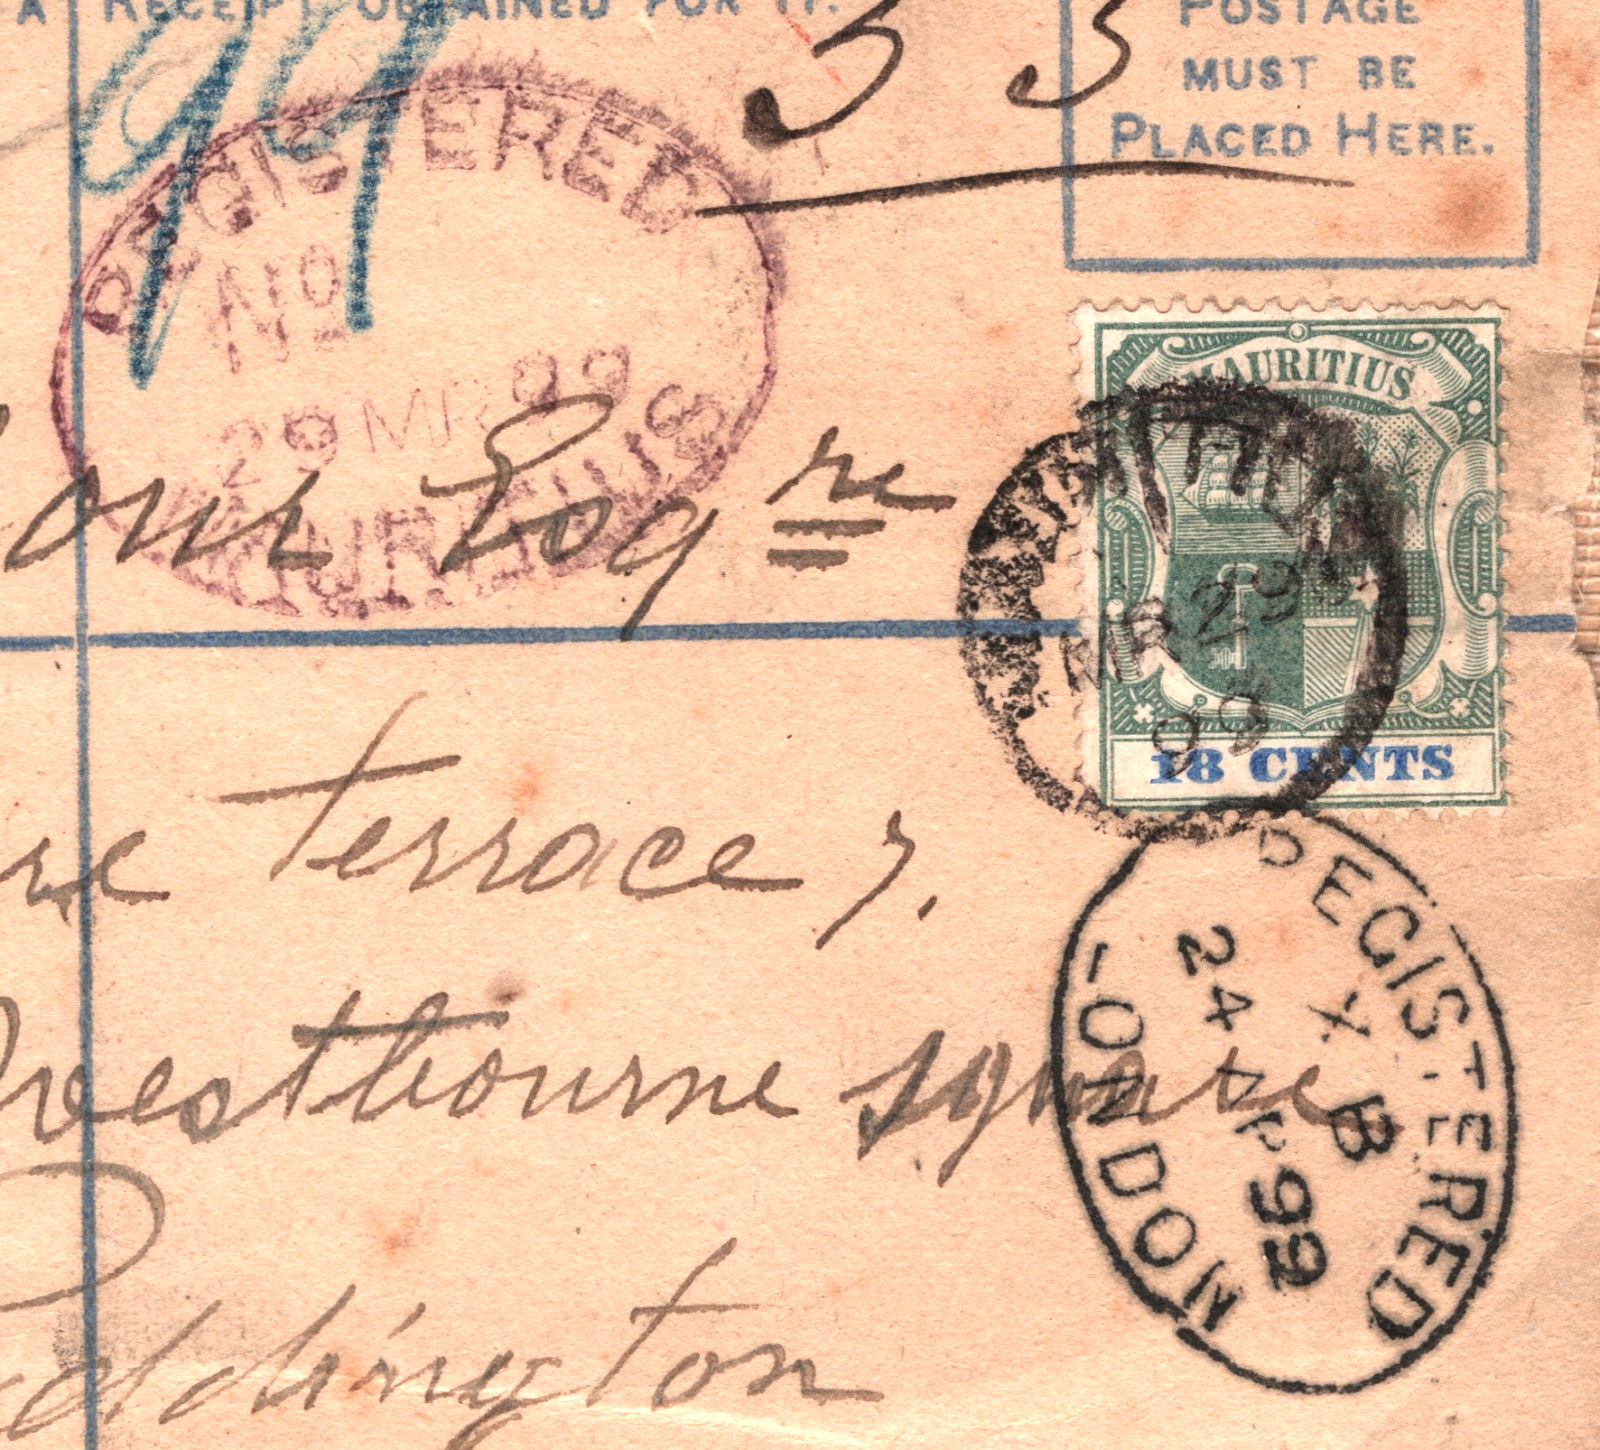 A RECEIPT OBTAINED FOR IT.
POSTAGE
MUST BE
PLACED HERE.
99
REGISTERED
NO
29 MR 99
MAURITIUS
MAURITIUS
18 CENTS
MR 29
99
Esqre
terrace
Westbourne square
Paddington
REGISTERED
X B
24 AP 99
LONDON